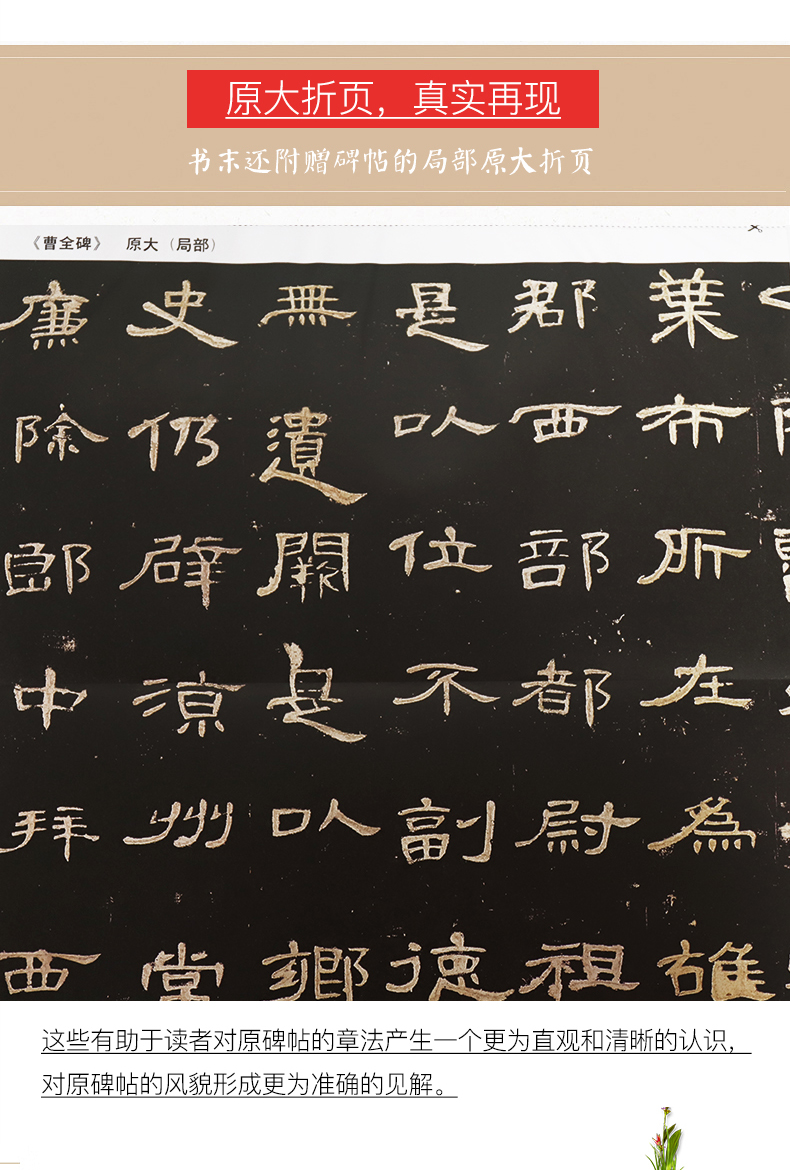 原大折页，真实再现
书末还附赠碑帖的局部原大折页
《曹全碑》 原大（局部）
葉布所在為雄
郡西部都尉祖
是以位不副德
無遺闕是以鄉
史仍辟涼州常
廉除郎中拜西
这些有助于读者对原碑帖的章法产生一个更为直观和清晰的认识，
对原碑帖的风貌形成更为准确的见解。